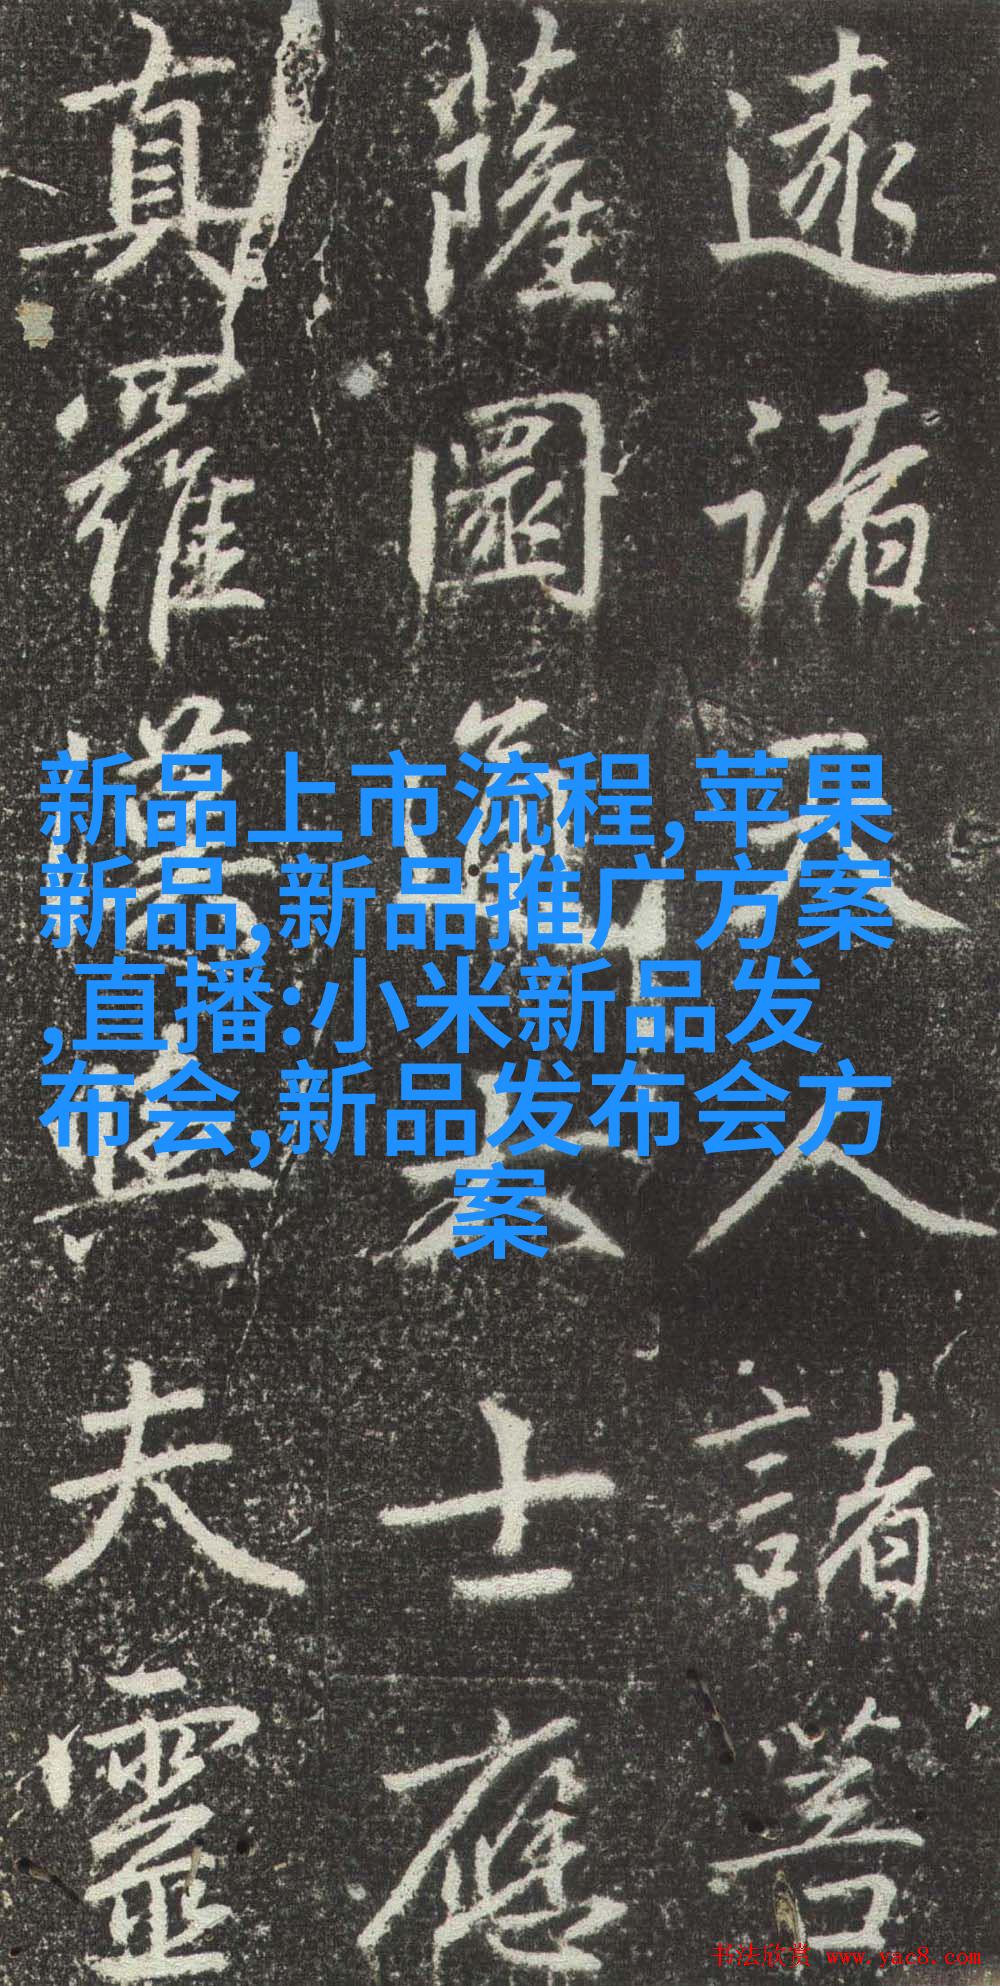 新品上市流程,苹果
新品,新品推广方案
,直播:小米新品发
布会,新品发布会方
案
諸天人諸菩
薩士應
真羅漢與夫靈
书法欣赏 www.yac8.com